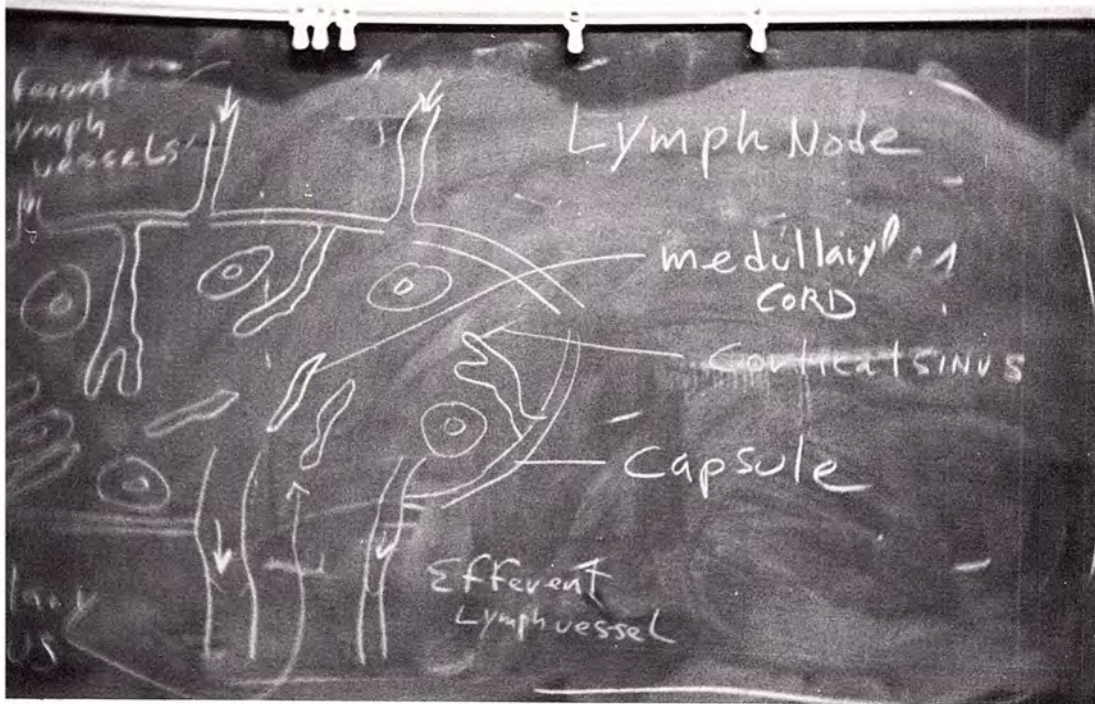 ferent
ymph
vessels
Lymph Node
medullary
CORD
Cortical SINUS
Capsule
Efferent
Lymph vessel
lary
US